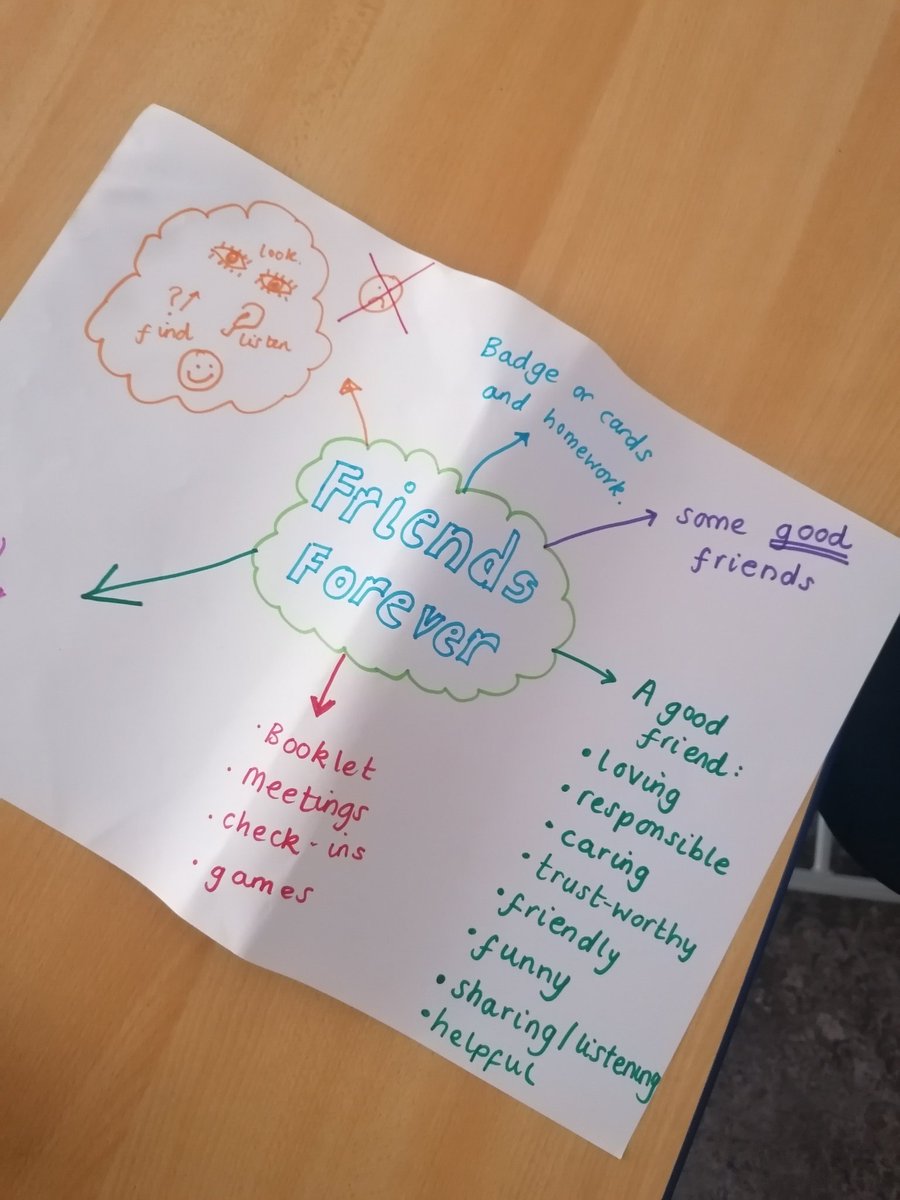 look.
? find
listen
Badge or cards
and homework.
some good
friends
Friends
Forever
A good
friend:
• loving
• responsible
• caring
• trust-worthy
• friendly
• funny
• sharing/listening
• helpful
• Booklet
• meetings
• check-ins
• games